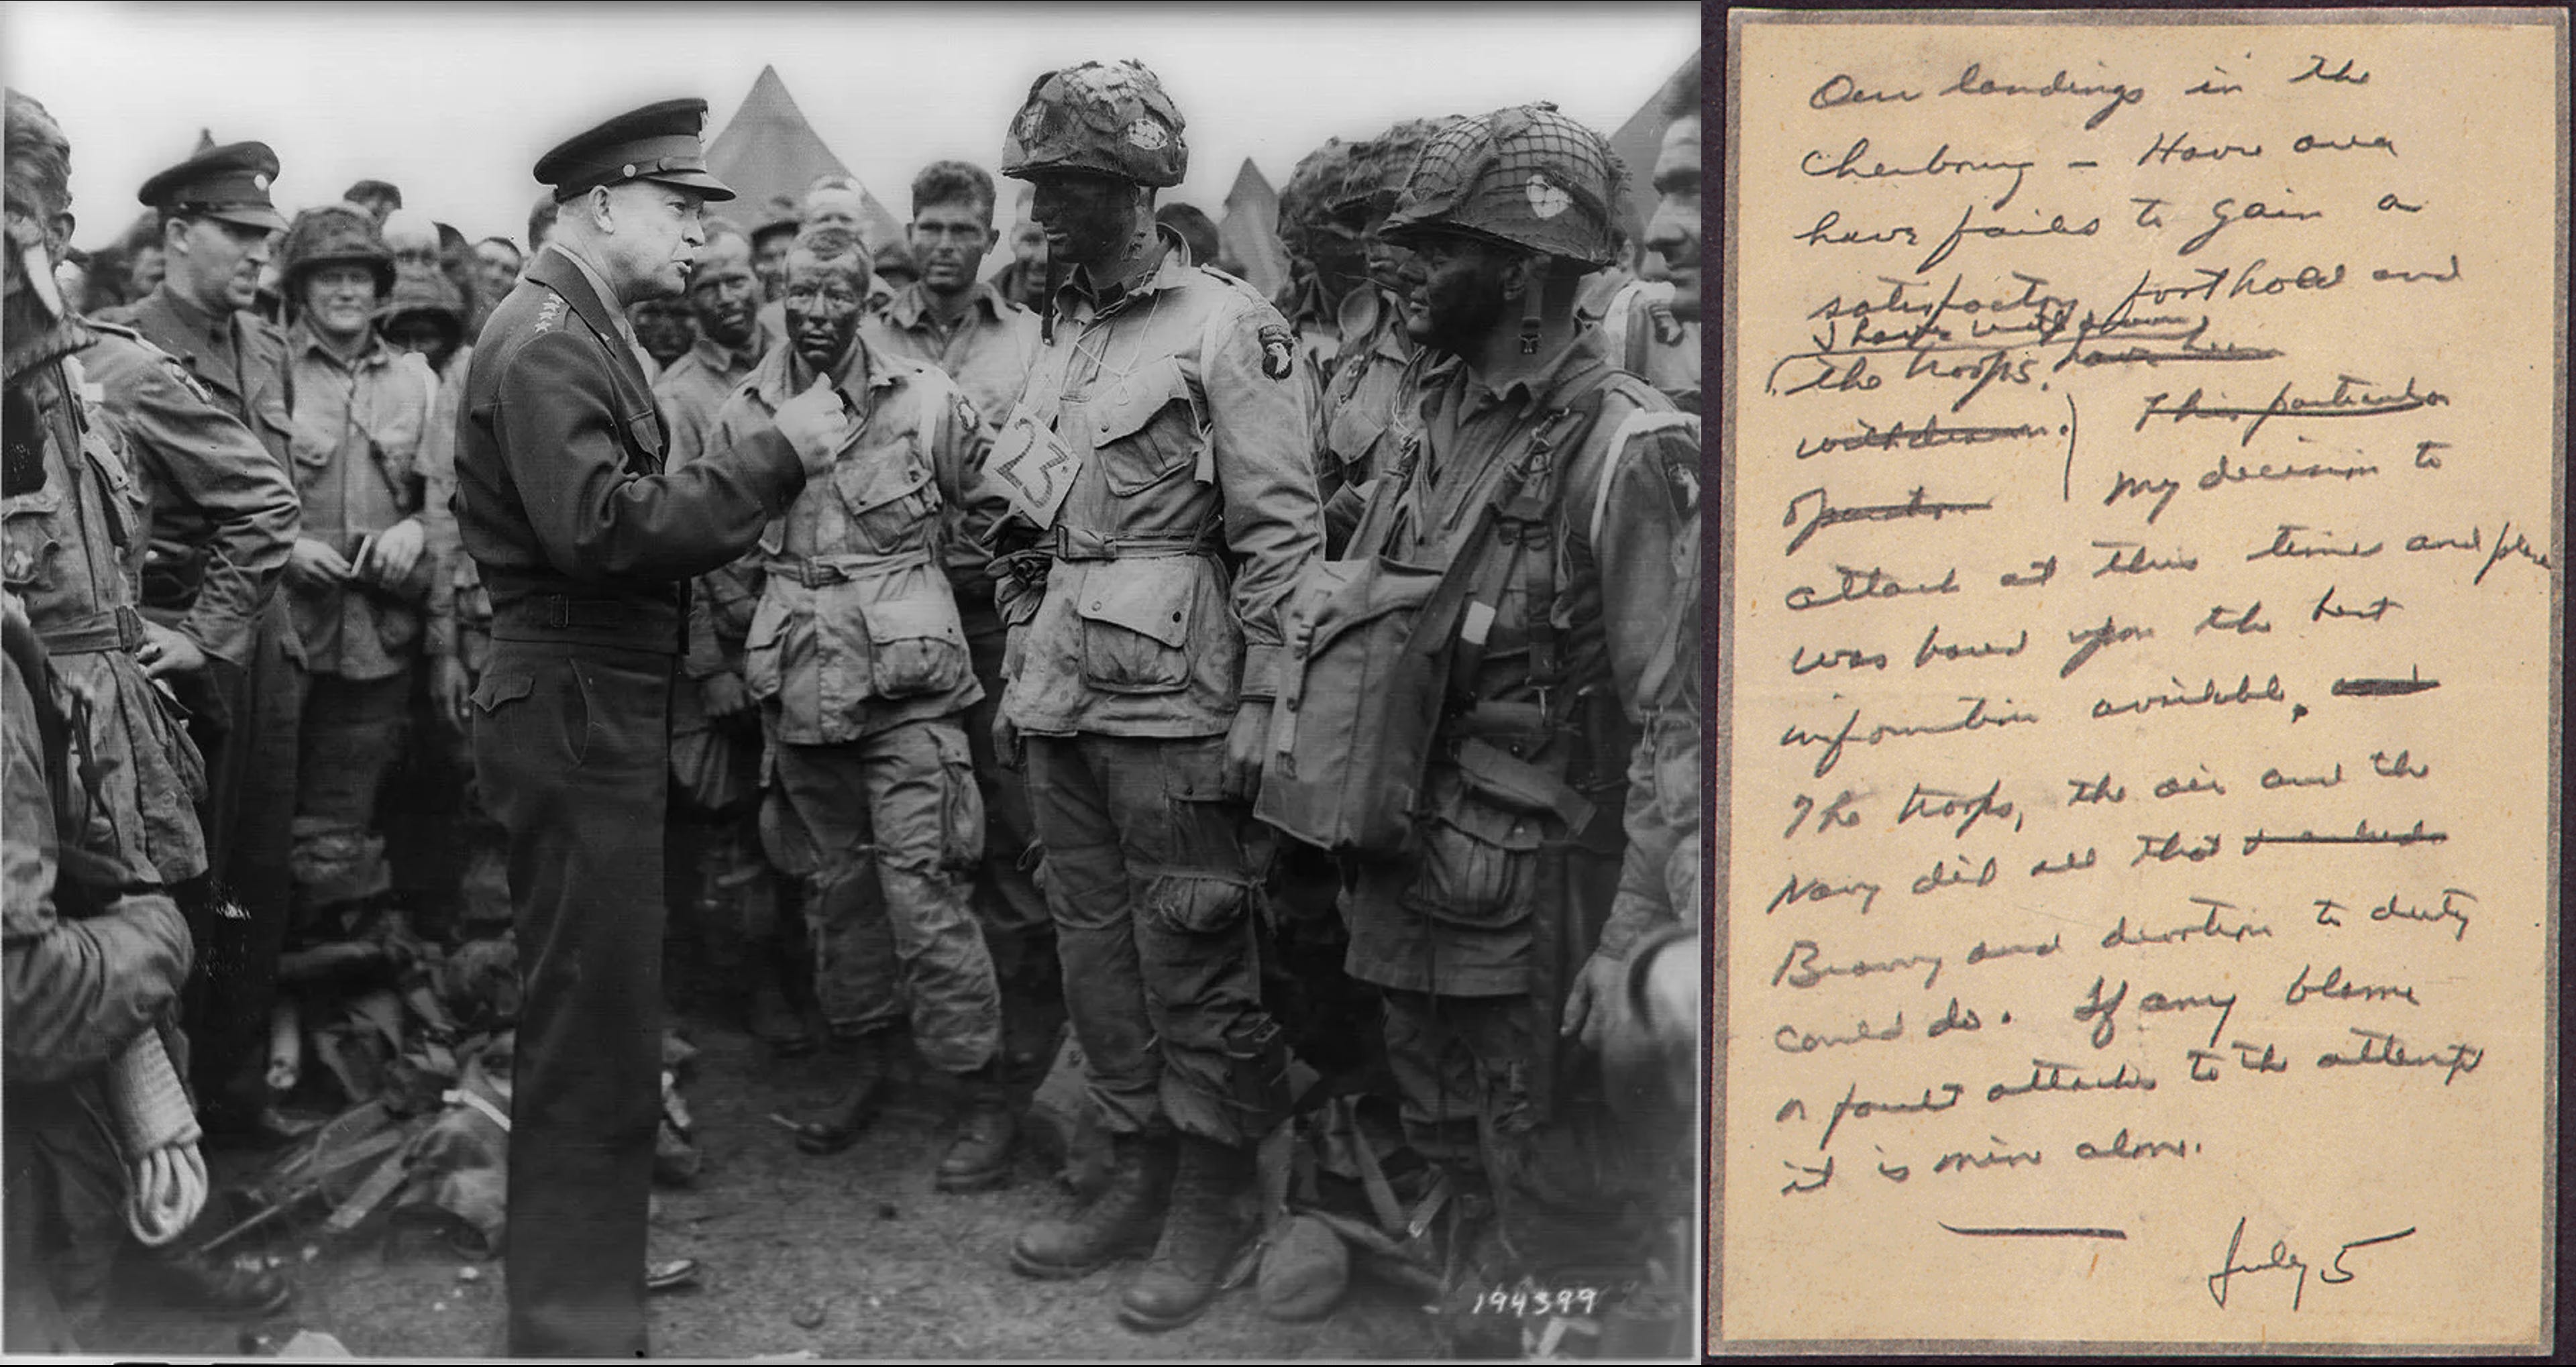 23
194399
Our landings in the
Cherbourg - Havre area
have failed to gain a
satisfactory foothold and
I have withdrawn
the troops. have been
withdrawn. This particular
operation My decision to
attack at this time and place
was based upon the best
information available, and
The troops, the air and the
Navy did all that
Bravery and devotion to duty
could do. If any blame
or fault attaches to the attempt
it is mine alone.
July 5